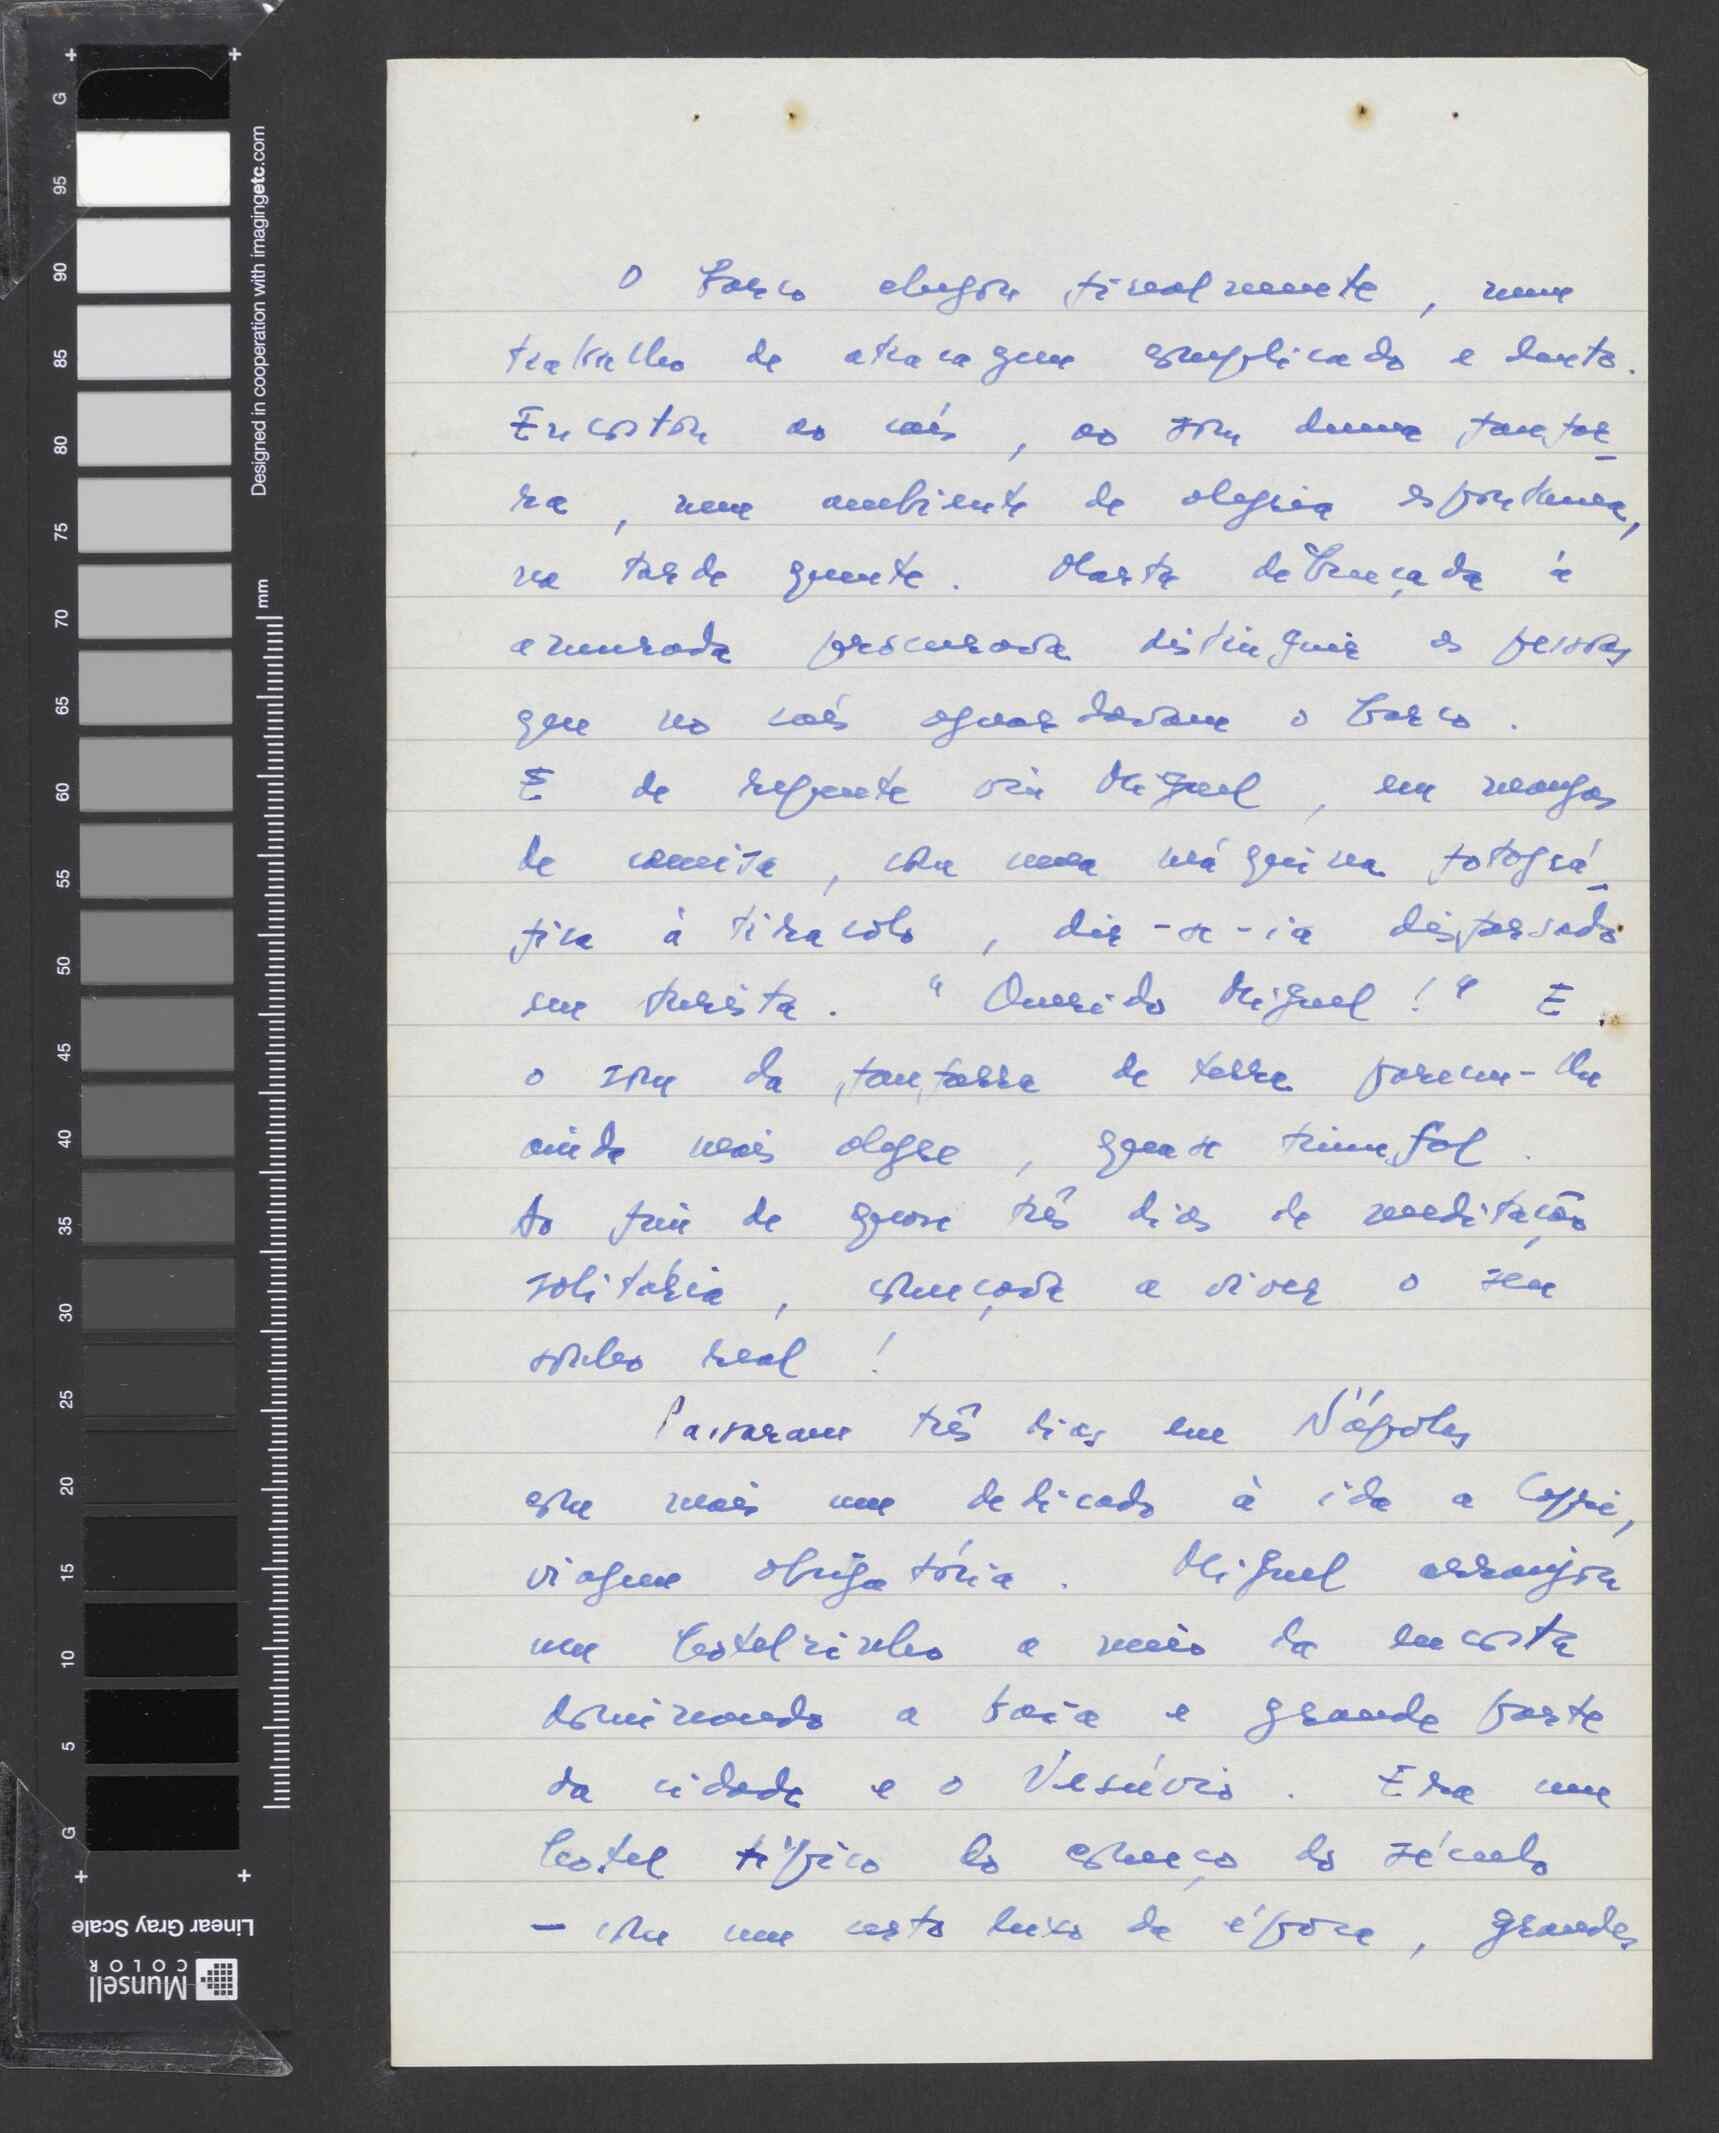 O barco chegou finalmente, num
trabalho de atracagem complicado e lento.
Encostou ao cais, ao som duma fanfar-
ra, num ambiente de alegria espontanea,
na tarde quente. Marta debruçada à
amurada procurava distinguir as pessoas
que no cais aguardavam o barco.
E de repente viu Miguel, em mangas
de camisa, com uma máquina fotográ-
fica à tiracolo, dir-se-ia disfarsado
em turista. "Querido Miguel!" E
o som da fanfarra de terra pareceu-lhe
ainda mais alegre, quase triunfal.
Ao fim de quase três dias de meditação
solitária, começava a viver o seu
sonho real!
Passaram três dias em Nápoles
com mais um dedicado à ida a Capri,
viagem obrigatória. Miguel arranjou
um hotelzinho a meio da encosta
dominando a baía e grande parte
da cidade e o Vesúvio. Era um
hotel típico do começo do século
- com um certo luxo da época, grandes
G
95
90
85
80
75
70
65
60
55
50
45
40
35
30
25
20
15
10
5
G
Designed in cooperation with imagingetc.com
mm
Linear Gray Scale
Munsell
COLOR